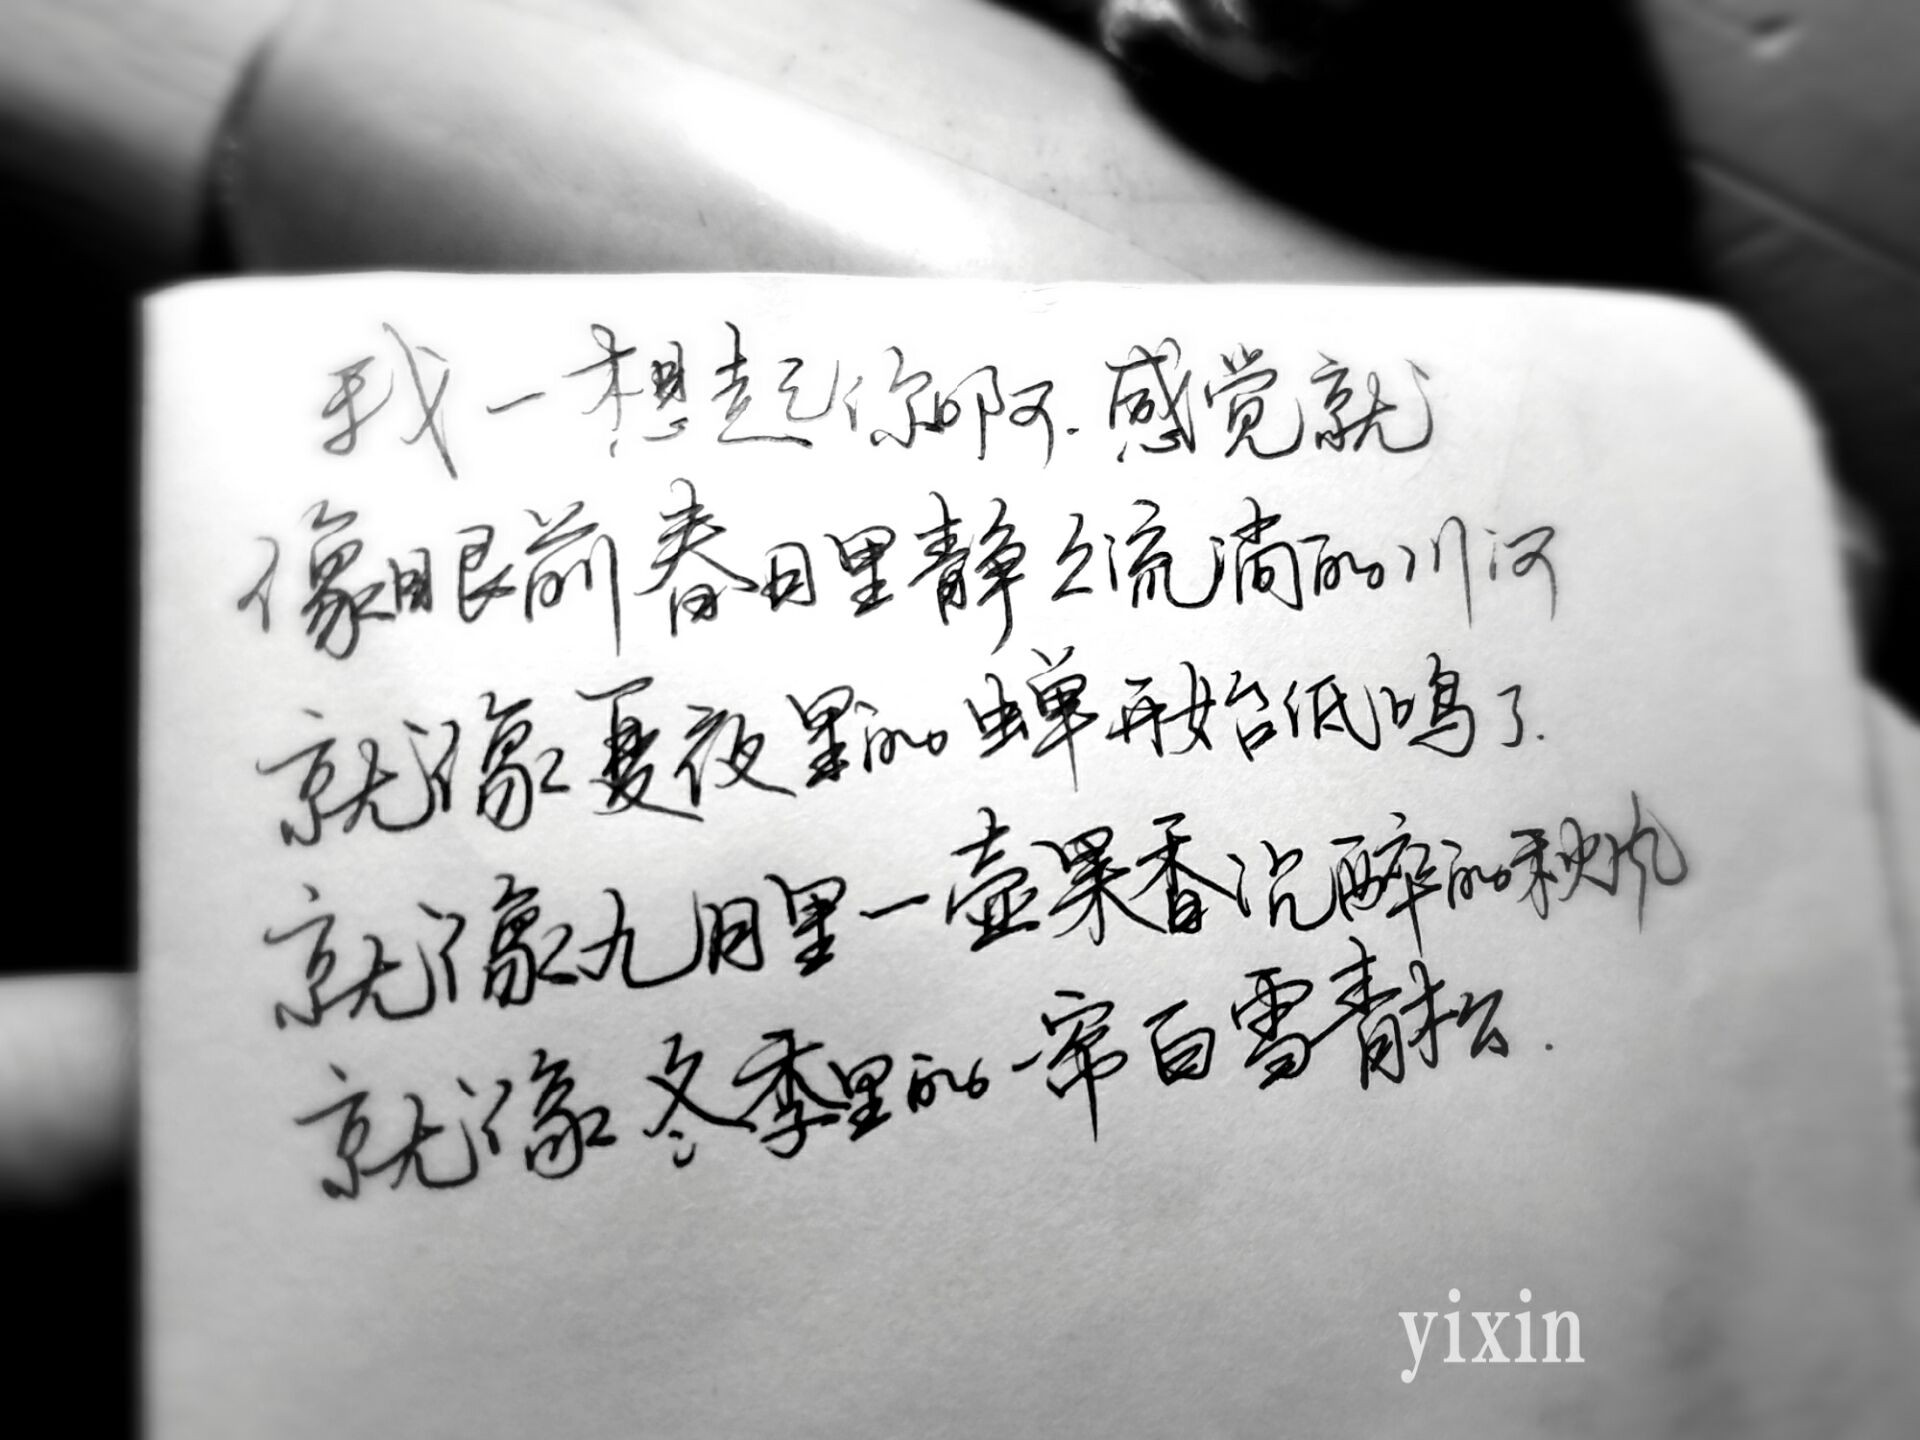 我一想起你啊.感觉就
像眼前春日里静々流淌的川河
就像夏夜里的蝉开始低鸣了.
就像九月里一壶果香沉醉的秋风
就像冬季里的一帘白雪青松.
yixin